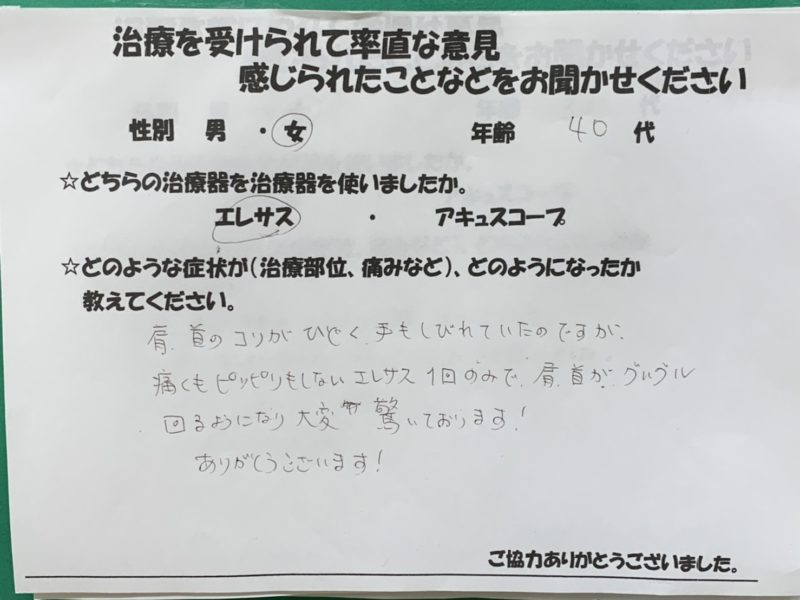 治療を受けられて率直な意見
感じられたことなどをお聞かせください
性別 男 ・ 女 年齢 40 代
☆どちらの治療器を治療器を使いましたか。
エレサス ・ アキュスコープ
☆どのような症状が(治療部位、痛みなど)、どのようになったか
教えてください。
肩、首のコリがひどく、手もしびれていたのですが、
痛くもピリピリもしないエレサス1回のみで、肩、首が、グルグル
回るようになり大変驚いております!
ありがとうございます!
ご協力ありがとうございました。